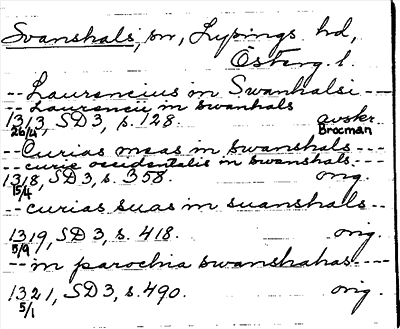 Svanshals, sn, Lysings hd,
Österg. l.
-- Laurencius in Swanhalsi --
-- Laurencii in swanhals
1313, SD 3, s. 128. avskr.
26/4 Brocman
-- Curias meas in swanshals --
-- curie occidentalis in swanshals ---
1318, SD 3, s. 358. orig.
15/4
-- curias suas in suanshalls --
1319, SD 3, s. 418. orig.
5/9
-- in parochia swanshahas ----
1321, SD 3, s. 490. orig.
5/1